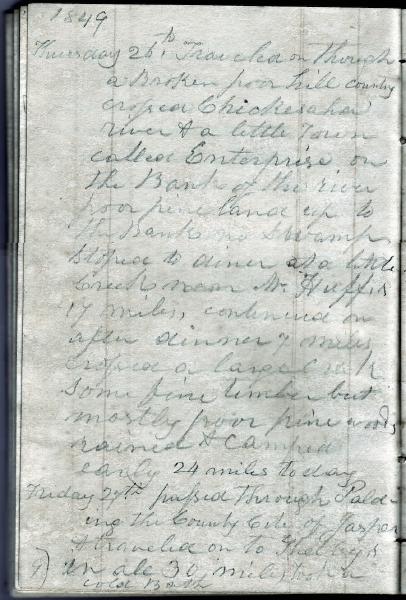 1849
Thursday 26th Traveled on through
a Broken poor hill country
crosed Chickesaha
river & a little Town
called Enterprise on
the Bank of the river
poor pine land up to
the Bank no swamp
stoped to dinner at a little
Creek near Mr Huffs
17 miles, continued on
after dinner 7 miles
crosed a large Creek
some fine timber but
mostly poor pine woods
rained & Camped
early 24 miles today
Friday 27th passed through Pald-
ing the County Cite of Jasper
& traveled on to Shelby's
9) in all 30 miles took a
cold Bath